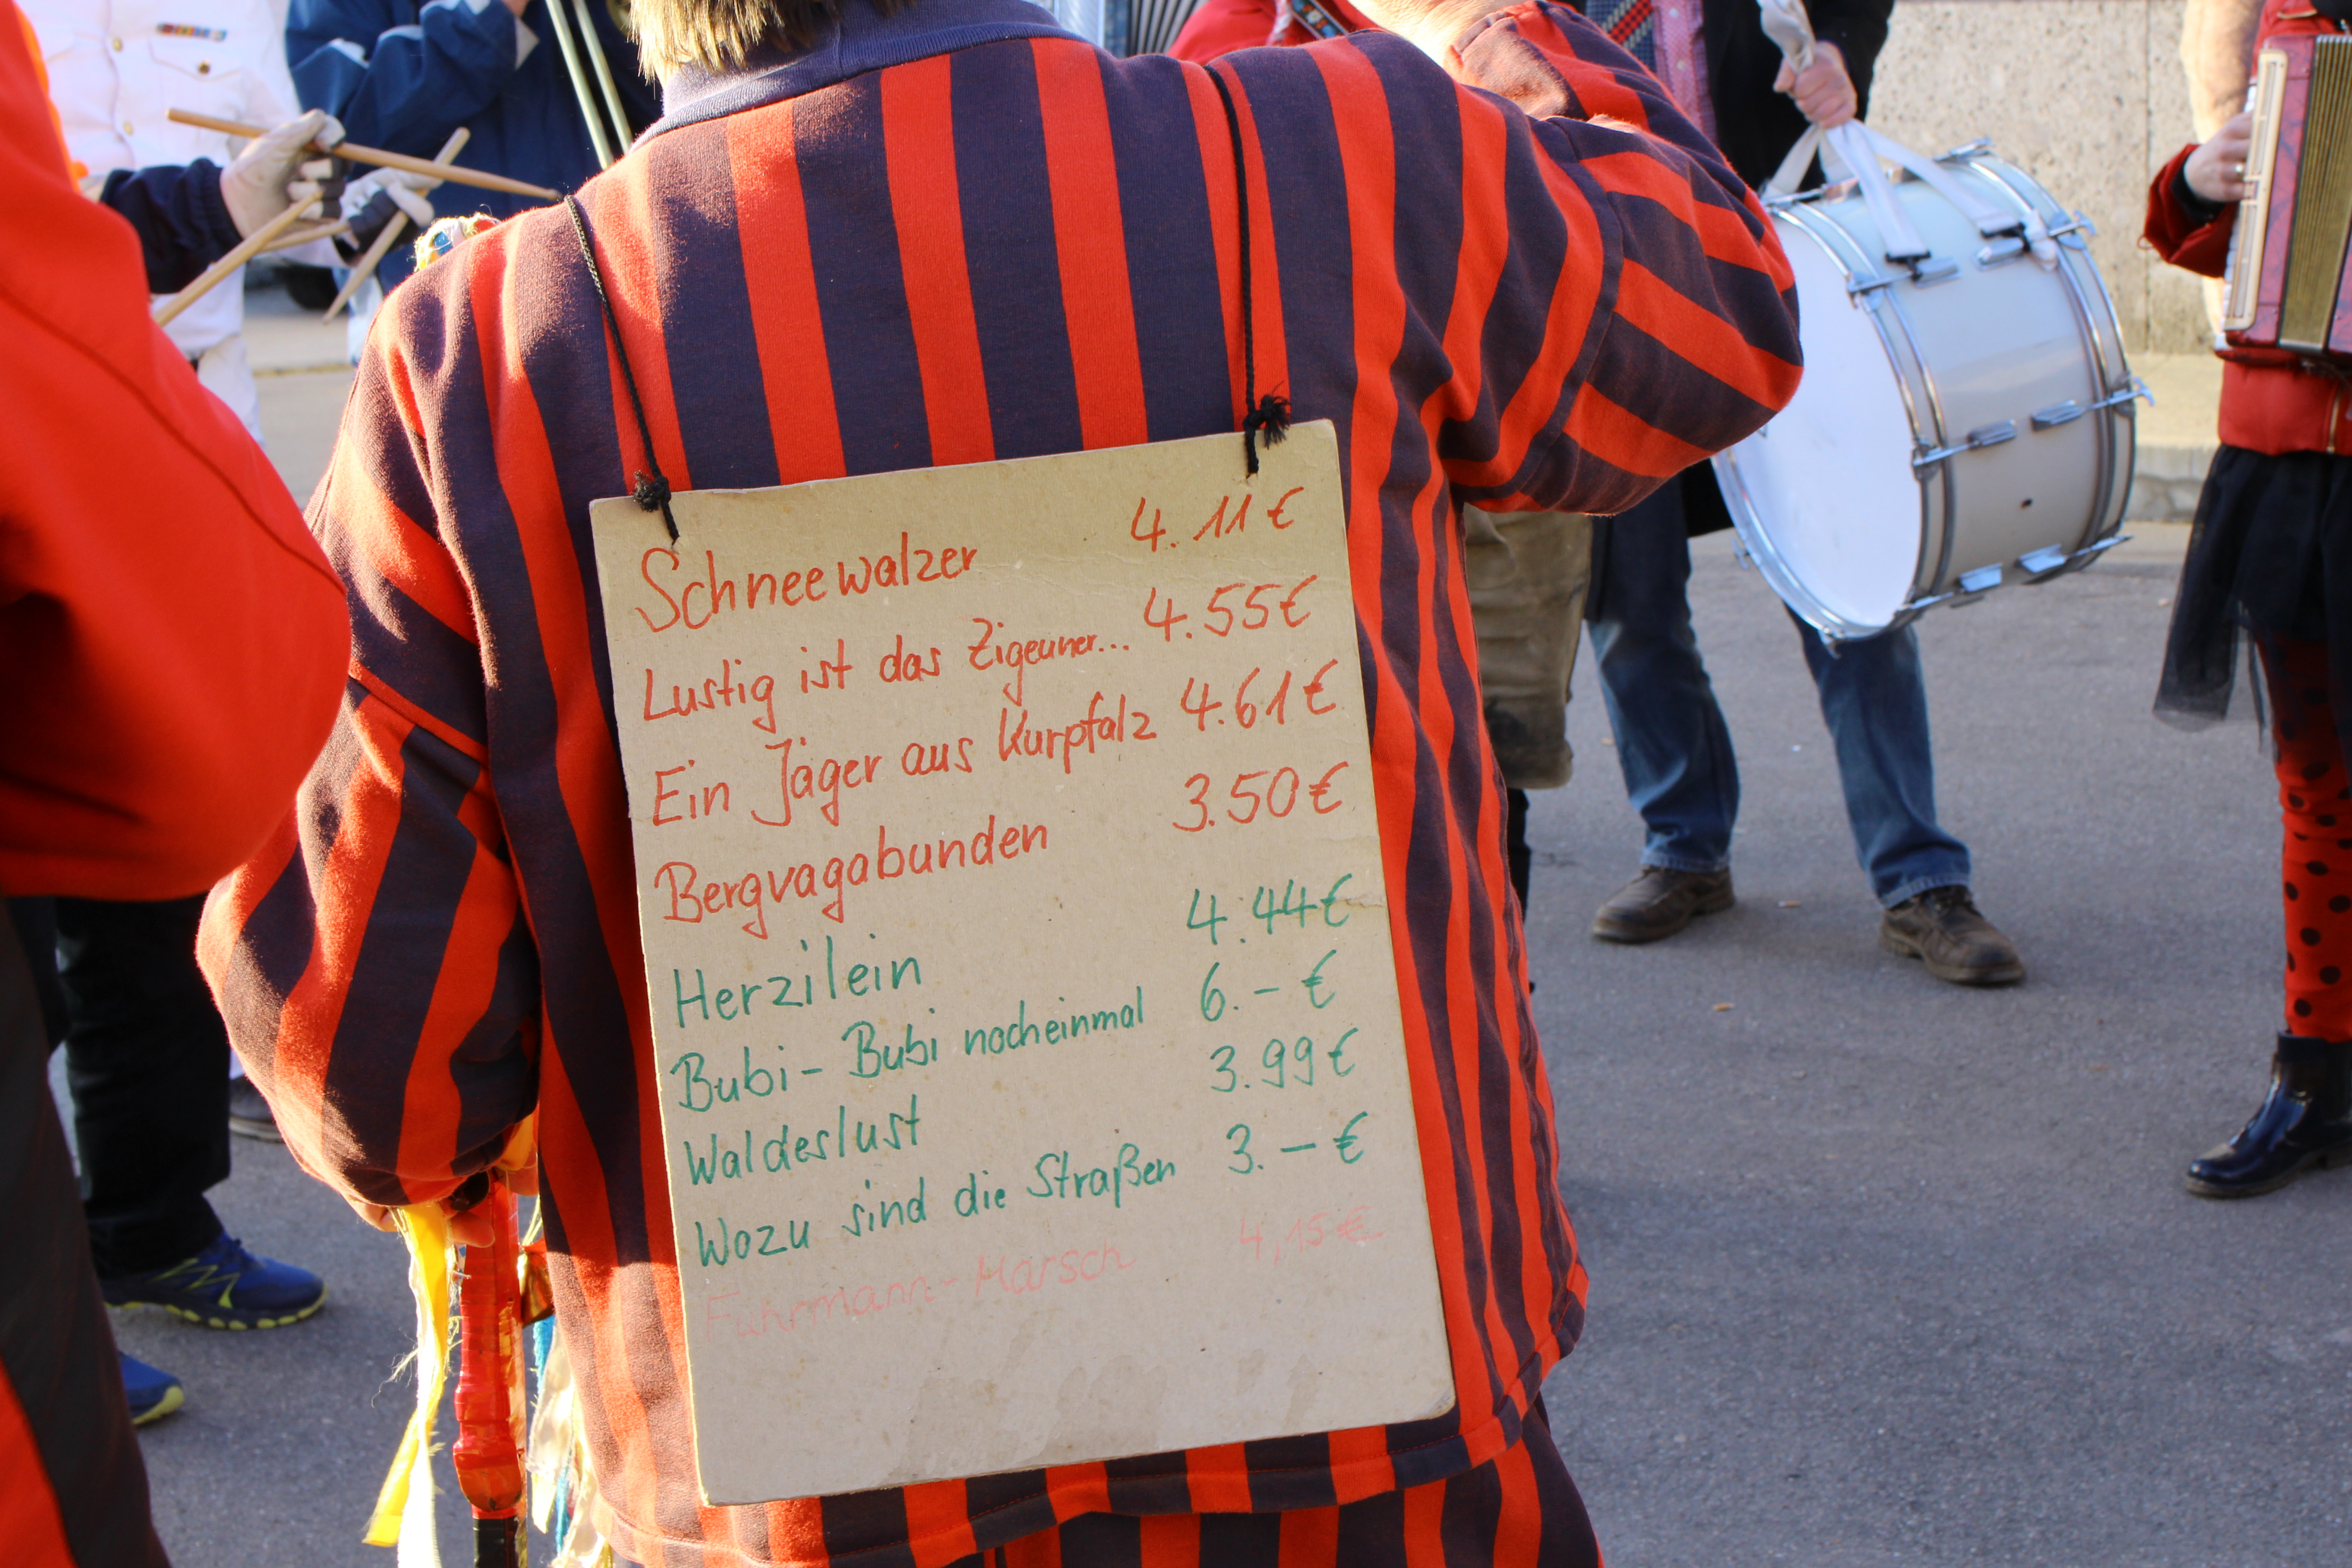 Schneewalzer 4.11€
Lustig ist das Zigeuner... 4.55€
Ein Jäger aus Kurpfalz 4.61€
Bergvagabunden 3.50€
Herzilein 4.44€
Bubi-Bubi nocheinmal 6.-€
Waldeslust 3.99€
Wozu sind die Straßen 3.-€
Fuhrmann-Marsch 4,15€